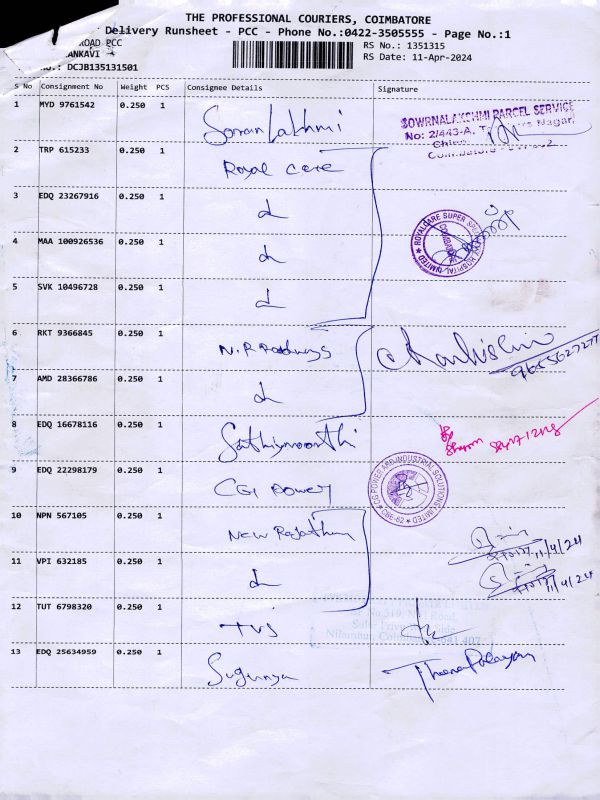 THE PROFESSIONAL COURIERS, COIMBATORE
Delivery Runsheet - PCC - Phone No.:0422-3505555 - Page No.:1
ROAD PCC
RS No: 1351315
RS Date: 11-Apr-2024
ANKAVI
No.: DCJB135131501
S No Consignment No Weight PCS Consignee Details Signature
1 MYD 9761542 0.250 1
SOWRNALAKSHMI PARCEL SERVICE
No: 2/443-A,
2 TRP 615233 0.250 1 Royal Care
3 EDQ 23267916 0.250 1
ROYALCARE SUPER SPECIALITY HOSPITAL LIMITED
COIMBATORE
4 MAA 100926536 0.250 1
5 SVK 10496728 0.250 1
6 RKT 9366845 0.250 1 N.R Roadways
7 AMD 28366786 0.250 1
8 EDQ 16678116 0.250 1 Sathiyamoorthi
9 EDQ 22298179 0.250 1 CGI Power
CG POWER AND INDUSTRIAL SOLUTIONS LIMITED
CBE-62
10 NPN 567105 0.250 1 New Rajasthan
11/4/24
11 VPI 632185 0.250 1
11/4/24
12 TUT 6798320 0.250 1 TVS
641 407
13 EDQ 25634959 0.250 1 Sugunya